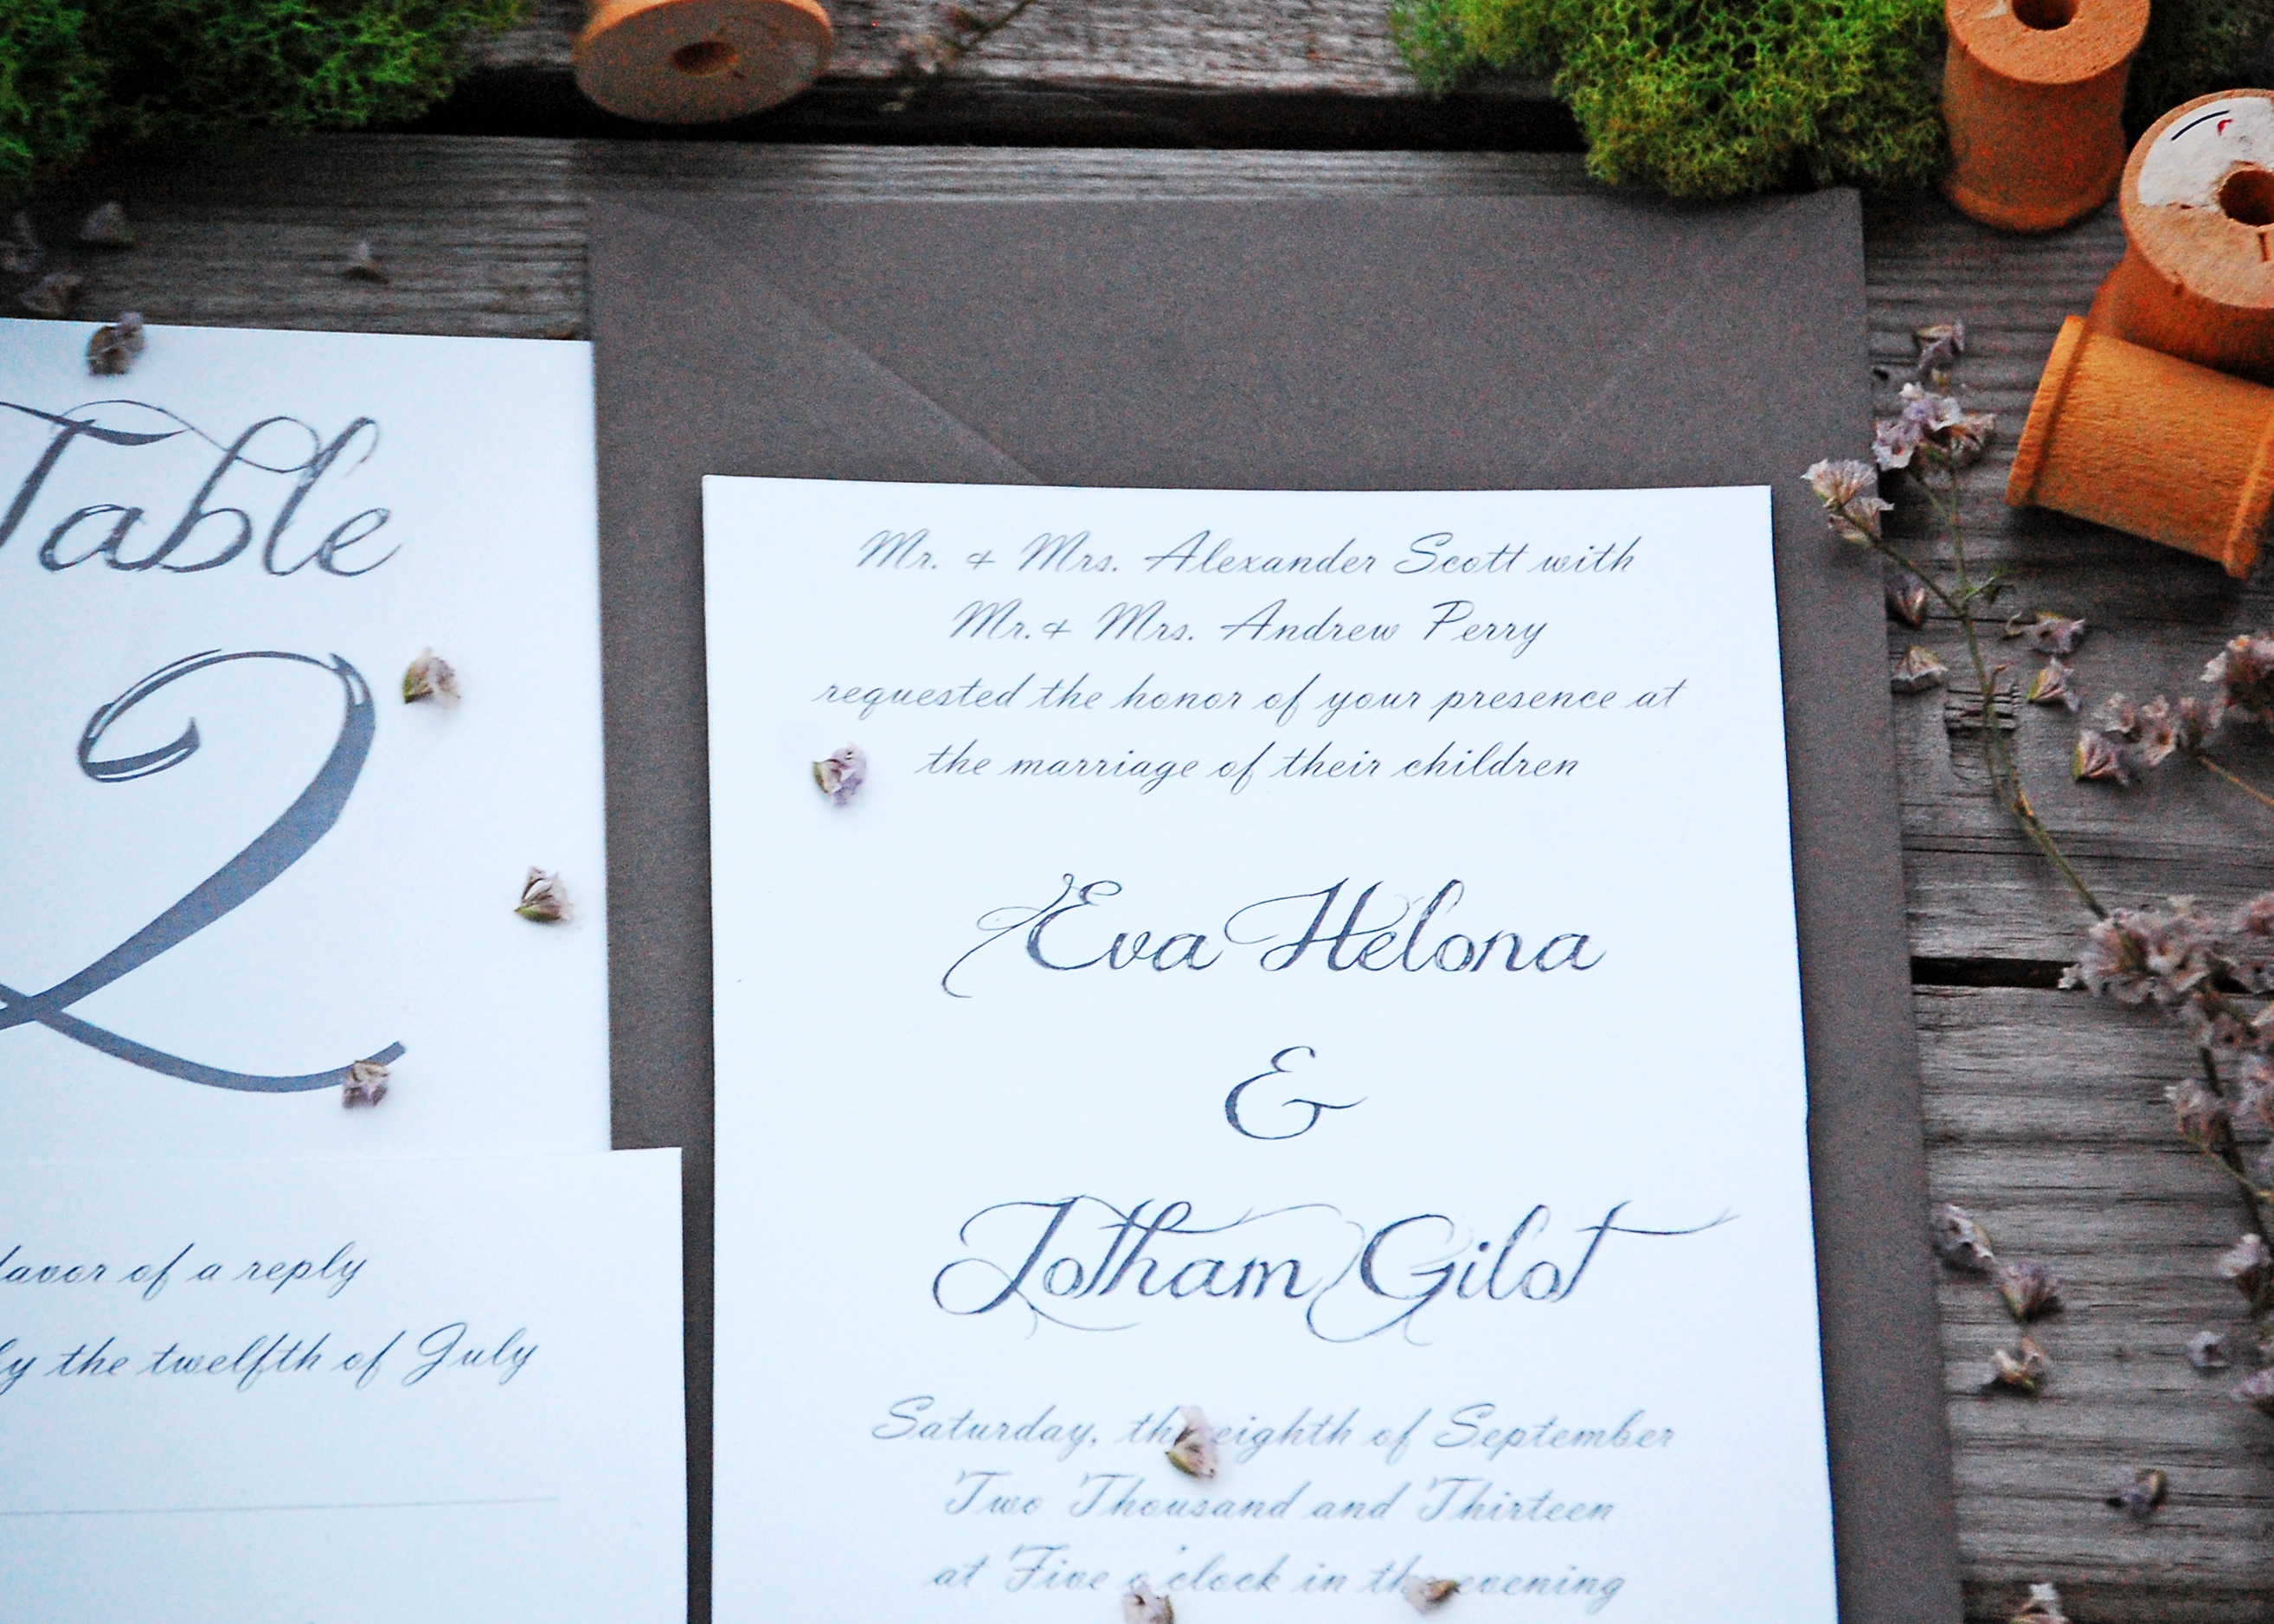 Table
2
favor of a reply
by the twelfth of July
Mr. & Mrs. Alexander Scott with
Mr. & Mrs. Andrew Perry
requested the honor of your presence at
the marriage of their children
Eva Helona
&
Jotham Gilot
Saturday, the eighth of September
Two Thousand and Thirteen
at Five o'clock in the evening